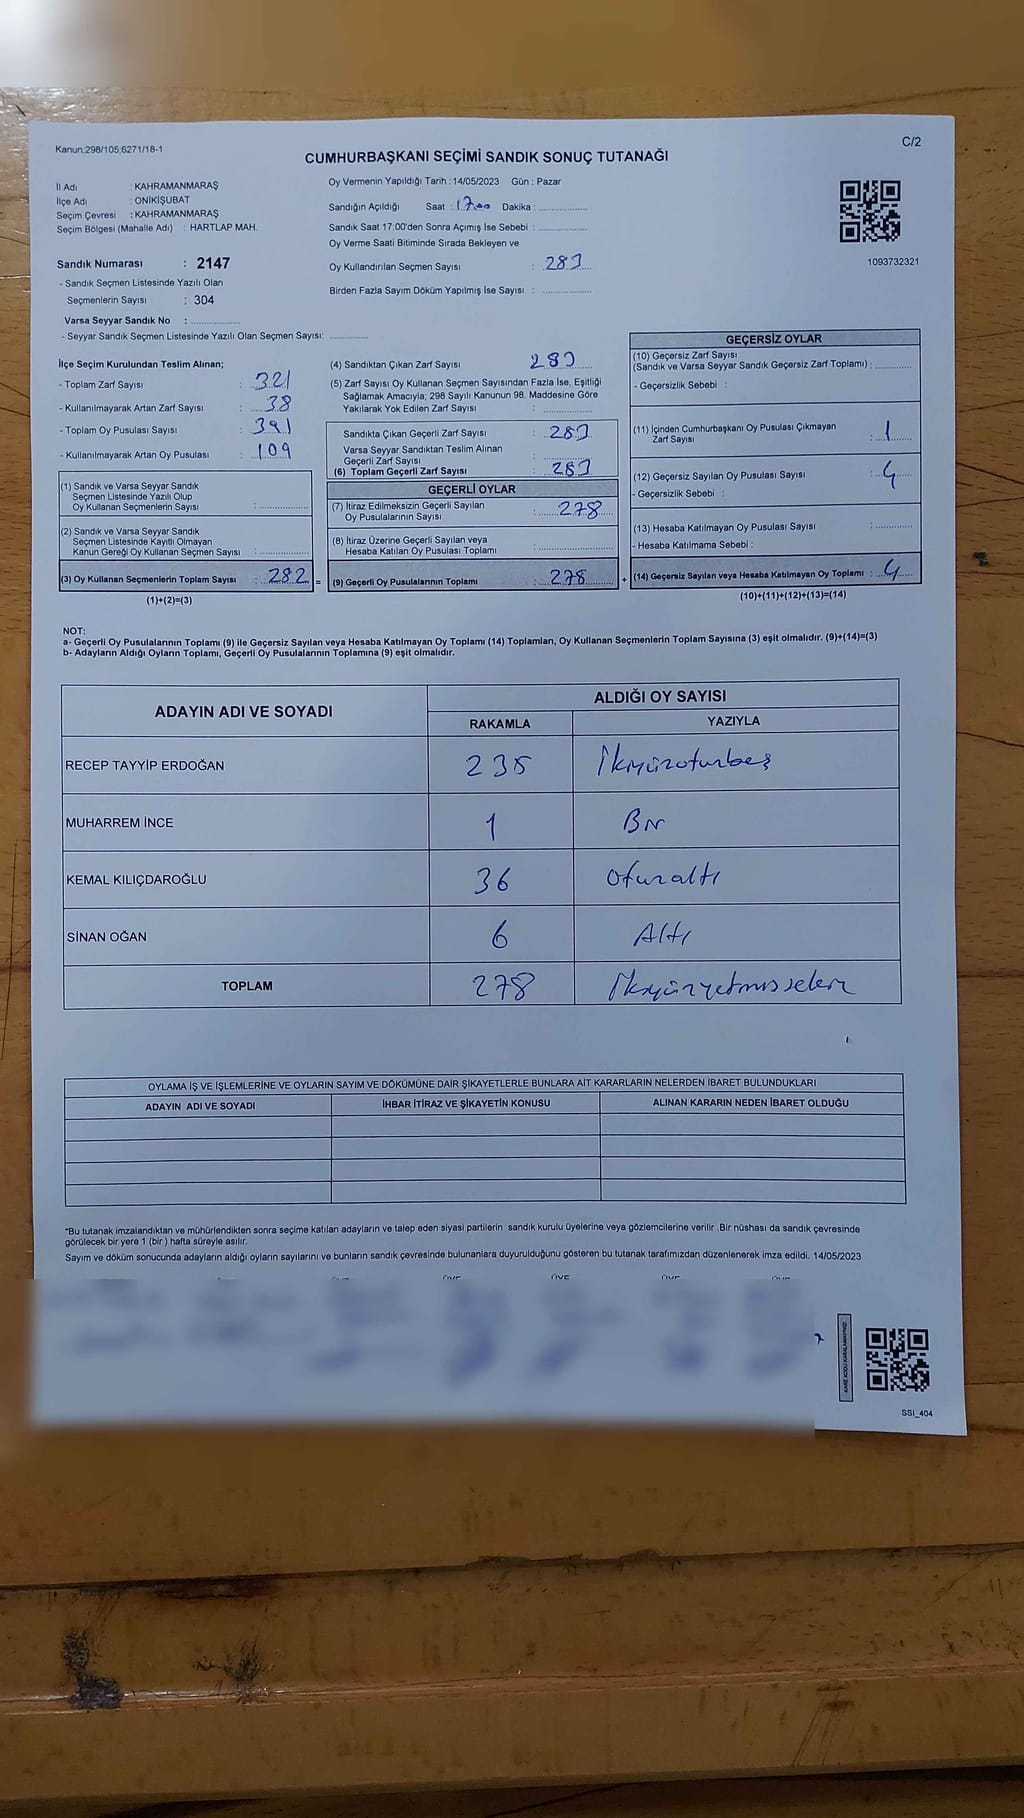 Kanun;298/105;6271/18-1
C/2
CUMHURBAŞKANI SEÇİMİ SANDIK SONUÇ TUTANAĞI
İl Adı : KAHRAMANMARAŞ
İlçe Adı : ONİKİŞUBAT
Seçim Çevresi : KAHRAMANMARAŞ
Seçim Bölgesi (Mahalle Adı) : HARTLAP MAH.
Sandık Numarası : 2147
- Sandık Seçmen Listesinde Yazılı Olan
Seçmenlerin Sayısı : 304
Varsa Seyyar Sandık No :
- Seyyar Sandık Seçmen Listesinde Yazılı Olan Seçmen Sayısı:
Oy Vermenin Yapıldığı Tarih :14/05/2023 Gün : Pazar
Sandığın Açıldığı Saat : 1700 Dakika :
Sandık Saat 17:00'den Sonra Açımış İse Sebebi :
Oy Verme Saati Bitiminde Sırada Bekleyen ve
Oy Kullandırılan Seçmen Sayısı : 283
Birden Fazla Sayım Döküm Yapılmış İse Sayısı :
1093732321
İlçe Seçim Kurulundan Teslim Alınan;
- Toplam Zarf Sayısı : 321
- Kullanılmayarak Artan Zarf Sayısı : 38
- Toplam Oy Pusulası Sayısı : 391
- Kullanılmayarak Artan Oy Pusulası : 109
(1) Sandık ve Varsa Seyyar Sandık
Seçmen Listesinde Yazılı Olup
Oy Kullanan Seçmenlerin Sayısı :
(2) Sandık ve Varsa Seyyar Sandık
Seçmen Listesinde Kayıtlı Olmayan
Kanun Gereği Oy Kullanan Seçmen Sayısı :
(3) Oy Kullanan Seçmenlerin Toplam Sayısı : 282 =
(1)+(2)=(3)
(4) Sandıktan Çıkan Zarf Sayısı 283
(5) Zarf Sayısı Oy Kullanan Seçmen Sayısından Fazla İse, Eşitliği
Sağlamak Amacıyla; 298 Sayılı Kanunun 98. Maddesine Göre
Yakılarak Yok Edilen Zarf Sayısı :
Sandıkta Çıkan Geçerli Zarf Sayısı : 283
Varsa Seyyar Sandıktan Teslim Alınan
Geçerli Zarf Sayısı :
(6) Toplam Geçerli Zarf Sayısı : 283
GEÇERLİ OYLAR
(7) İtiraz Edilmeksizin Geçerli Sayılan
Oy Pusulalarının Sayısı : 278
(8) İtiraz Üzerine Geçerli Sayılan veya
Hesaba Katılan Oy Pusulası Toplamı :
(9) Geçerli Oy Pusulalarının Toplamı : 278 +
GEÇERSİZ OYLAR
(10) Geçersiz Zarf Sayısı
(Sandık ve Varsa Seyyar Sandık Geçersiz Zarf Toplamı) :
- Geçersizlik Sebebi :
(11) İçinden Cumhurbaşkanı Oy Pusulası Çıkmayan
Zarf Sayısı : 1
(12) Geçersiz Sayılan Oy Pusulası Sayısı : 4
- Geçersizlik Sebebi :
(13) Hesaba Katılmayan Oy Pusulası Sayısı :
- Hesaba Katılmama Sebebi :
(14) Geçersiz Sayılan veya Hesaba Katılmayan Oy Toplamı : 4
(10)+(11)+(12)+(13)=(14)
NOT:
a- Geçerli Oy Pusulalarının Toplamı (9) ile Geçersiz Sayılan veya Hesaba Katılmayan Oy Toplamı (14) Toplamları, Oy Kullanan Seçmenlerin Toplam Sayısına (3) eşit olmalıdır. (9)+(14)=(3)
b- Adayların Aldığı Oyların Toplamı, Geçerli Oy Pusulalarının Toplamına (9) eşit olmalıdır.
ADAYIN ADI VE SOYADI ALDIĞI OY SAYISI
RAKAMLA YAZIYLA
RECEP TAYYİP ERDOĞAN 235 İkiyüzoturbeş
MUHARREM İNCE 1 Bir
KEMAL KILIÇDAROĞLU 36 Oturaltı
SİNAN OĞAN 6 Altı
TOPLAM 278 İkiyüzyetmişsekiz
OYLAMA İŞ VE İŞLEMLERİNE VE OYLARIN SAYIM VE DÖKÜMÜNE DAİR ŞİKAYETLERLE BUNLARA AİT KARARLARIN NELERDEN İBARET BULUNDUKLARI
ADAYIN ADI VE SOYADI İHBAR İTİRAZ VE ŞİKAYETİN KONUSU ALINAN KARARIN NEDEN İBARET OLDUĞU
*Bu tutanak imzalandıktan ve mühürlendikten sonra seçime katılan adayların ve talep eden siyasi partilerin sandık kurulu üyelerine veya gözlemcilerine verilir .Bir nüshası da sandık çevresinde
görülecek bir yere 1 (bir ) hafta süreyle asılır.
Sayım ve döküm sonucunda adayların aldığı oyların sayılarını ve bunların sandık çevresinde bulunanlara duyurulduğunu gösteren bu tutanak tarafımızdan düzenlenerek imza edildi. 14/05/2023
ÜYE ÜYE ÜYE ÜYE ÜYE
KARE KODU KARALAMAYINIZ!
SSI_404